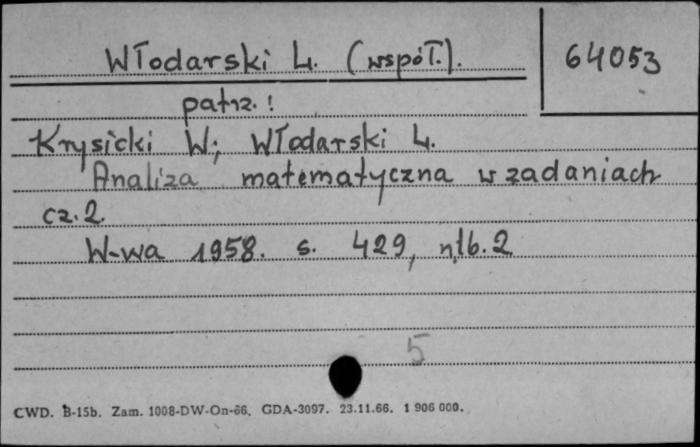 Włodarski Ł. (współ.).
64053
patrz. !
Krysicki W; Włodarski Ł.
Analiza matematyczna w zadaniach
cz. 2
W-wa 1958. s. 429, nlb. 2
5
CWD. B-15b. Zam. 1008-DW-On-66. GDA-3097. 23.11.66. 1 906 000.